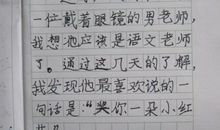 一位戴着眼镜的男老师,
我想他应该是语文老师
了。通过这几天的了解,
我发现他最喜欢说的一
句话是:“奖你一朵小红